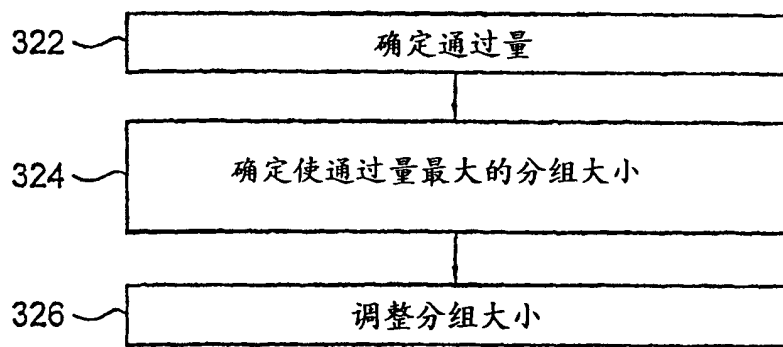 322 确定通过量
324 确定使通过量最大的分组大小
326 调整分组大小